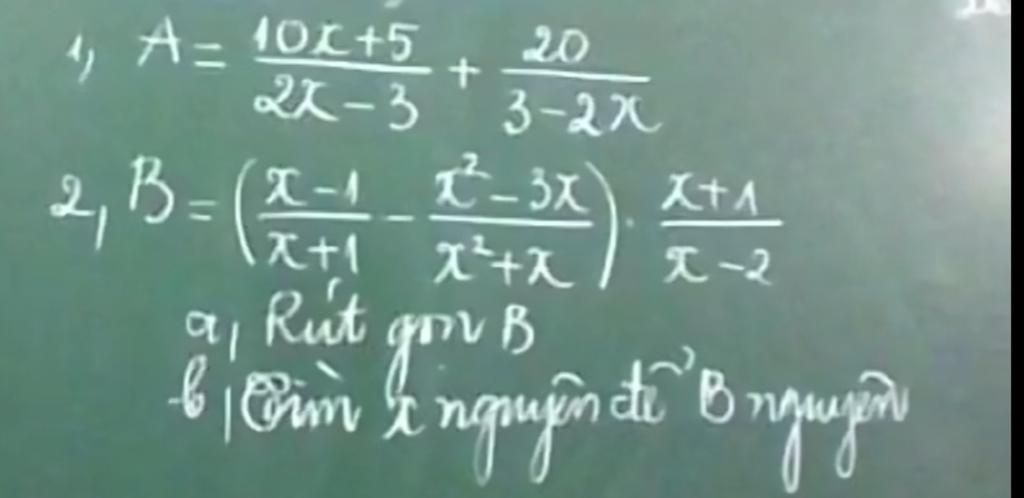 1, A = \frac{10x+5}{2x-3} + \frac{20}{3-2x}
2, B = \left(\frac{x-1}{x+1} - \frac{x^2-3x}{x^2+x}\right) \cdot \frac{x+1}{x-2}
a, Rút gọn B
b, Tìm x nguyên để B nguyên